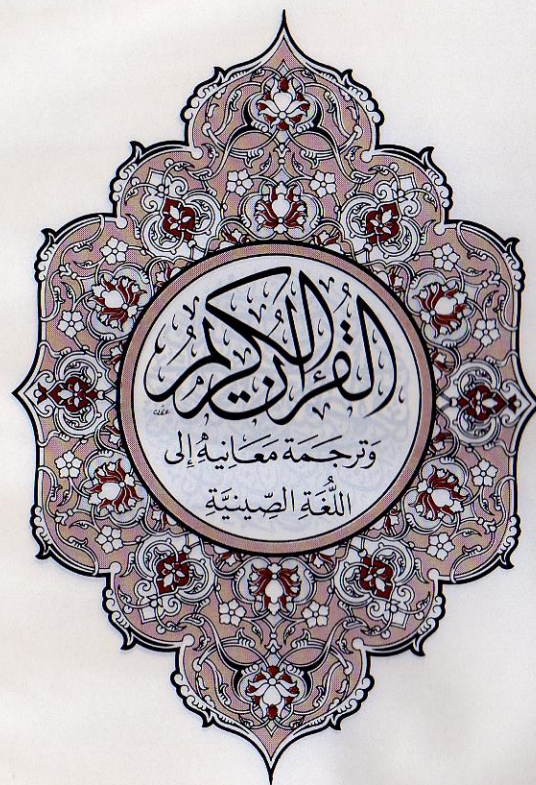 القرآن الكريم
وَترجَمَة مَعَانِيهُ إِلى
اللُّغَةِ الصِّينِيَّةِ